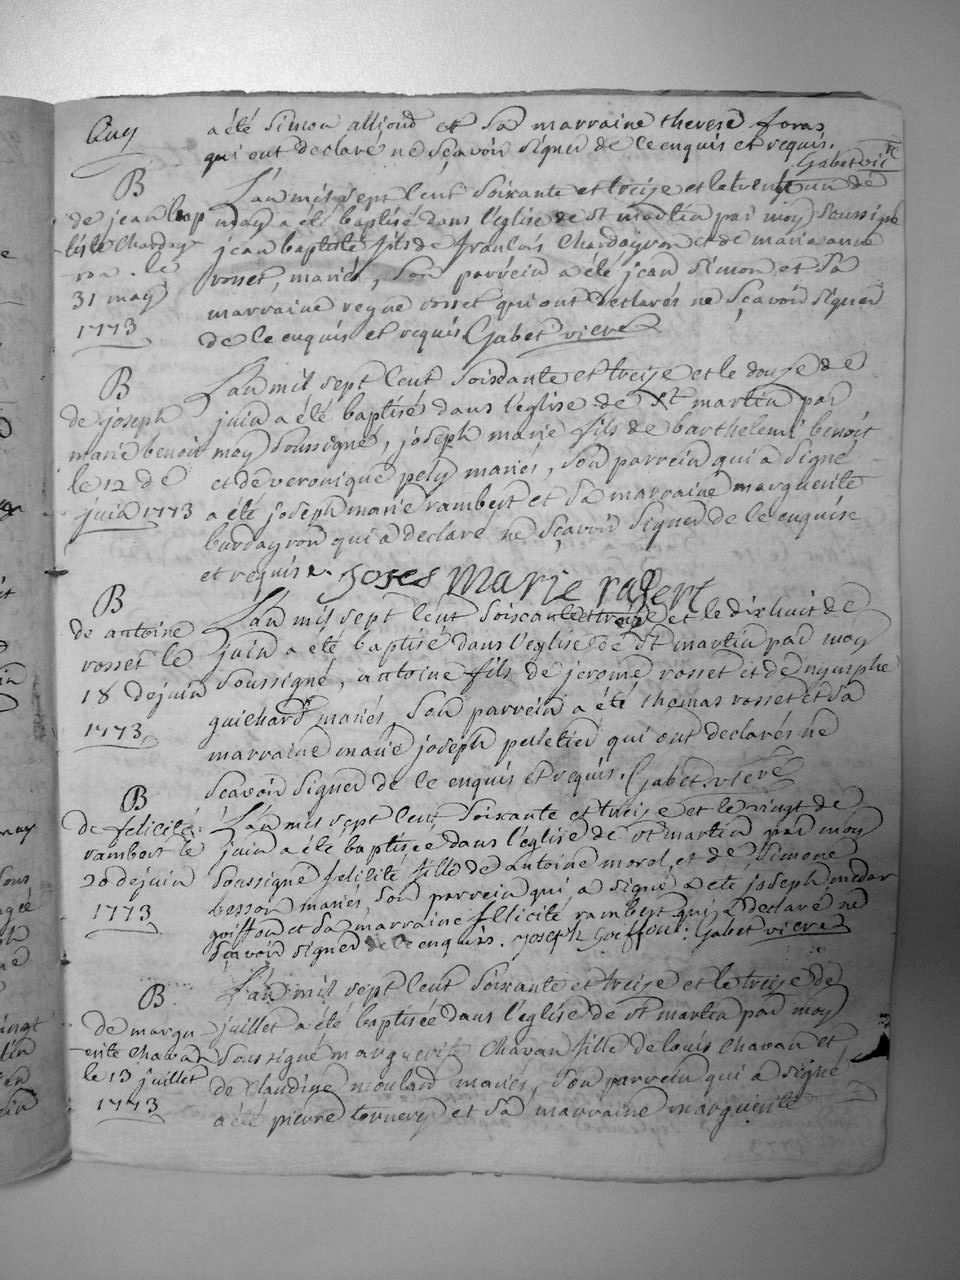 a été Simon alliond et Sa marraine therese foras
qui ont declare ne Sçavoir Signer de ce enquis et requis.
Gabet vic re
B
de jean bap
tiste Charday
ron. le
31 may
1773
L'an mil sept cent Soixante et treize et le trente un de
may a été baptisé dans l'église de St martin par moy Soussigné
jean baptiste fils de francois Chardayron et de marie anne
rosset, mariés, Son parrein a été jean Simon et Sa
marraine reyne rosset qui ont declarés ne Sçavoir Signer
de ce enquis et requis Gabet vicre
B
de joseph
marie benoit
le 12 de
juin 1773
L'an mil sept cent Soixante et treize et le douze de
juin a été baptisé dans l'église de St martin par
moy Soussigné, joseph marie fils de barthelemi benoit
et de veronique pely mariés, Son parrein qui a Signé
a été joseph marie rambert et Sa marraine marguerite
burdayron qui a declaré ne Sçavoir Signer de ce enquise
et requise. joses marie
B
de antoine
rosset le
18 de juin
1773
L'an mil sept cent Soixante et treize et le dixhuit de
juin a été baptisé dans l'église de St martin par moy
Soussigné, antoine fils de jerome rosset et de nymphe
guichard mariés, Son parrein a été thomas rosset et Sa
marraine marie joseph peletier qui ont declarés ne
Scavoir Signer de ce enquis et requis. Gabet vicre
B
de felicité
rambert le
20 de juin
1773
L'an mil sept cent Soixante et treize et le vingt de
juin a été baptisée dans l'église de St martin par moy
Soussigné felicité fille de antoine morel et de Simone
besson mariés, Son parrein qui a Signé a été joseph medar
goiffon et Sa marraine felicité rambert qui a declaré ne
Sçavoir Signer de ce enquis. joseph Goiffon. Gabet vicre
B
de margu
erite Chavan
le 13 juillet
1773
L'an mil sept cent Soixante et treize et le treize de
juillet a été baptisée dans l'église de St martin par moy
Soussigné marguerite Chavan fille de louis Chavan et
de Claudine moulard mariés, Son parrein qui a Signé
a été pierre tornery et Sa marraine marguerite